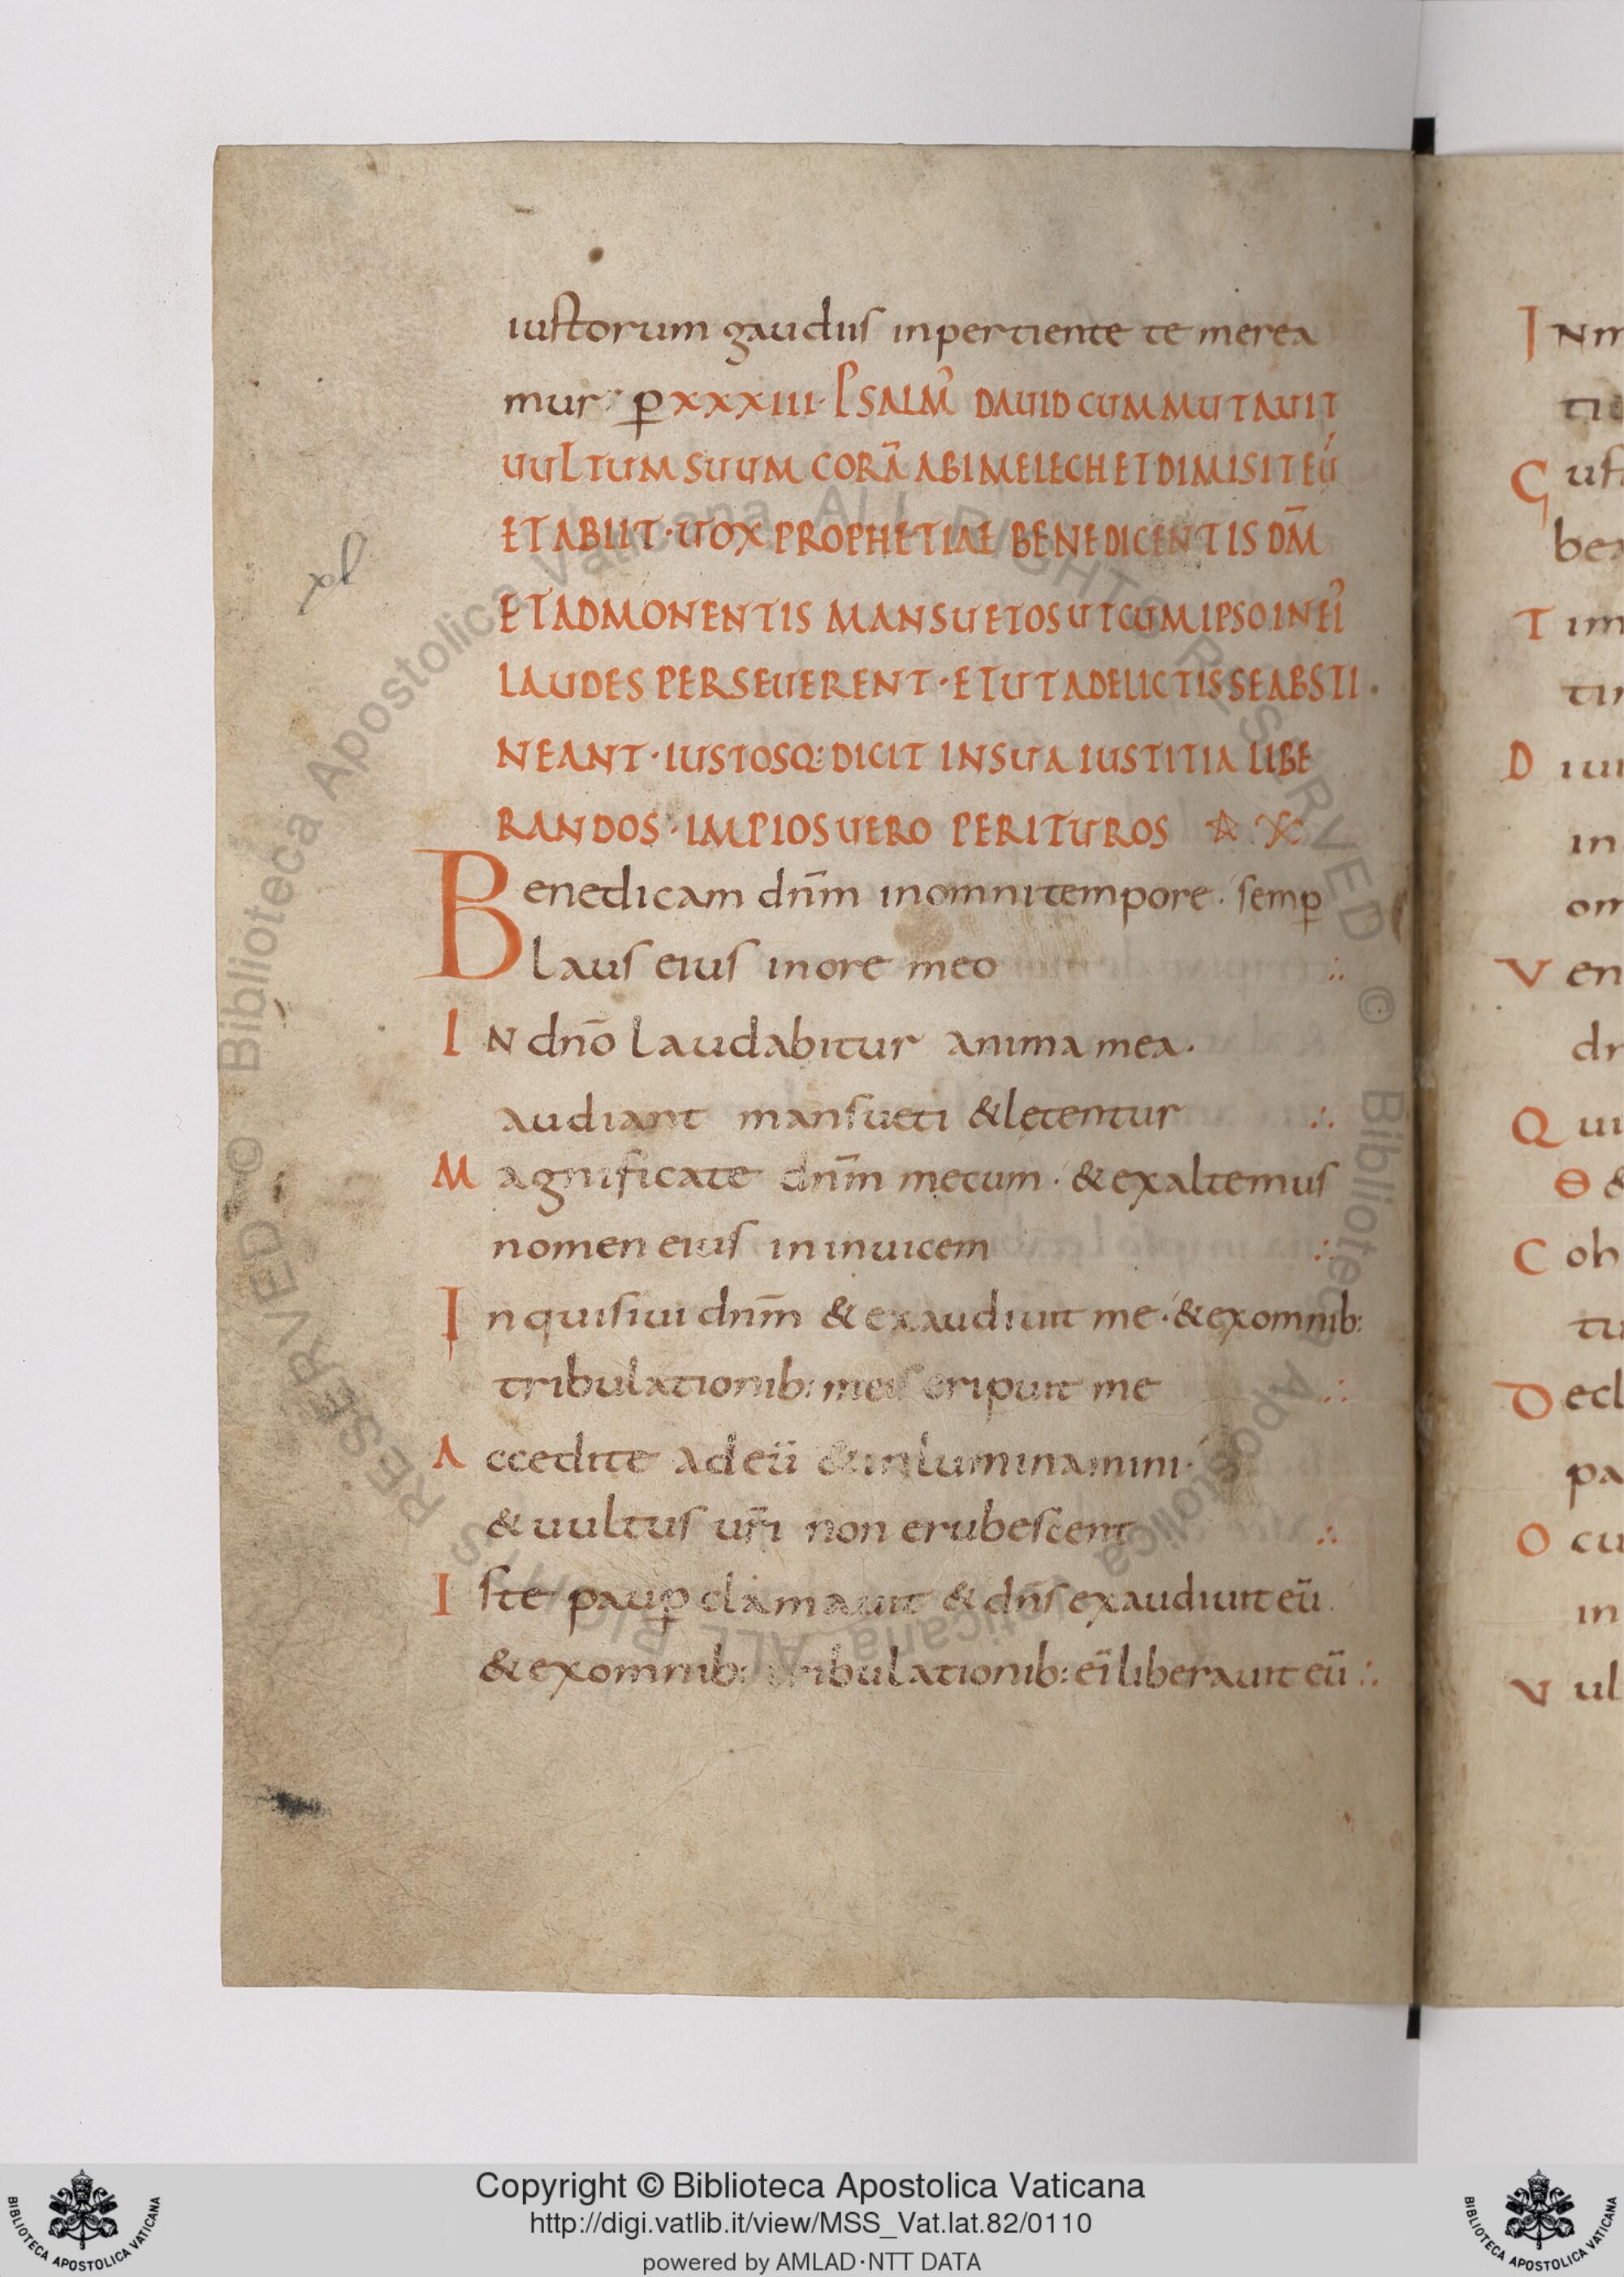 iustorum gaudiis inpertiente te merea
mur· p̱ xxxiii· PSALM' DAUID CUM MUTAUIT
UULTUM SUUM CORĀ ABIMELECH ET DIMISIT EŪ
ET ABIIT · UOX PROPHETIAE BENEDICENTIS DM̄
ET ADMONENTIS MANSUETOS UT CUM IPSO IN EI'
LAUDES PERSEUERENT · ET UT A DELICTIS SE ABSTI·
NEANT · IUSTOSQ: DICIT IN SUA IUSTITIA LIBE
RANDOS · IMPIOS UERO PERITUROS
Benedicam dnm̄ in omni tempore · semp̱
laus eius in ore meo ∴
IN dnō laudabitur anima mea·
audiant mansueti & lętentur ∴
Magnificate dnm̄ mecum · & exaltemus
nomen eius in inuicem ∴
Inquisiui dnm̄ & exaudiuit me · & ex omnib:
tribulationib: meis eripuit me ∴
Accedite ad eū & inluminamini·
& uultus ur̄i non erubescent ∴
Iste paup̱ clamauit & dn̄s exaudiuit eū
& ex omnib: tribulationib: ei' liberauit eū ∴
xl
IN
Gus
T im
D iu
in
om
V en
Q ui
C oh
Decl
pa
O cu
in
V ul
Copyright © Biblioteca Apostolica Vaticana
http://digi.vatlib.it/view/MSS_Vat.lat.82/0110
powered by AMLAD·NTT DATA
BIBLIOTECA APOSTOLICA VATICANA
BIBLIOTECA APOSTOLICA VATICANA